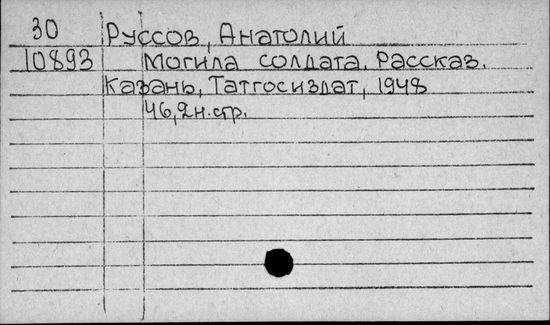 30 Руссов, Анатолий
10893 Могила солдата. Рассказ.
Казань, Татгосиздат, 1948
46,2н.стр.